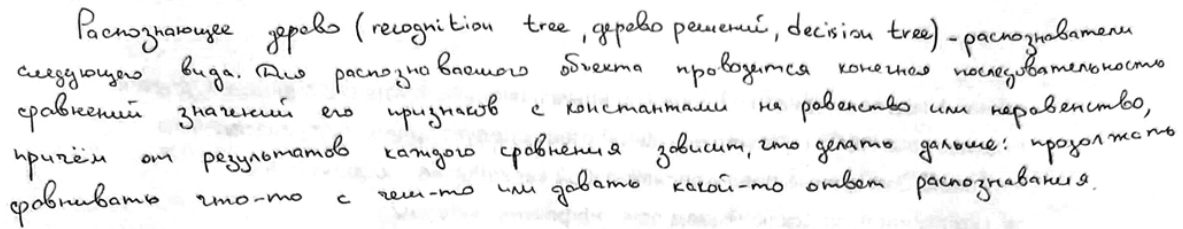 Распознающее дерево (recognition tree, дерево решений, decision tree) - распознаватели
следующего вида. Для распознаваемого объекта проводится конечная последовательность
сравнений значений его признаков с константами на равенство или неравенство,
причём от результатов каждого сравнения зависит, что делать дальше: продолжать
сравнивать что-то с чем-то или давать какой-то ответ распознавания.